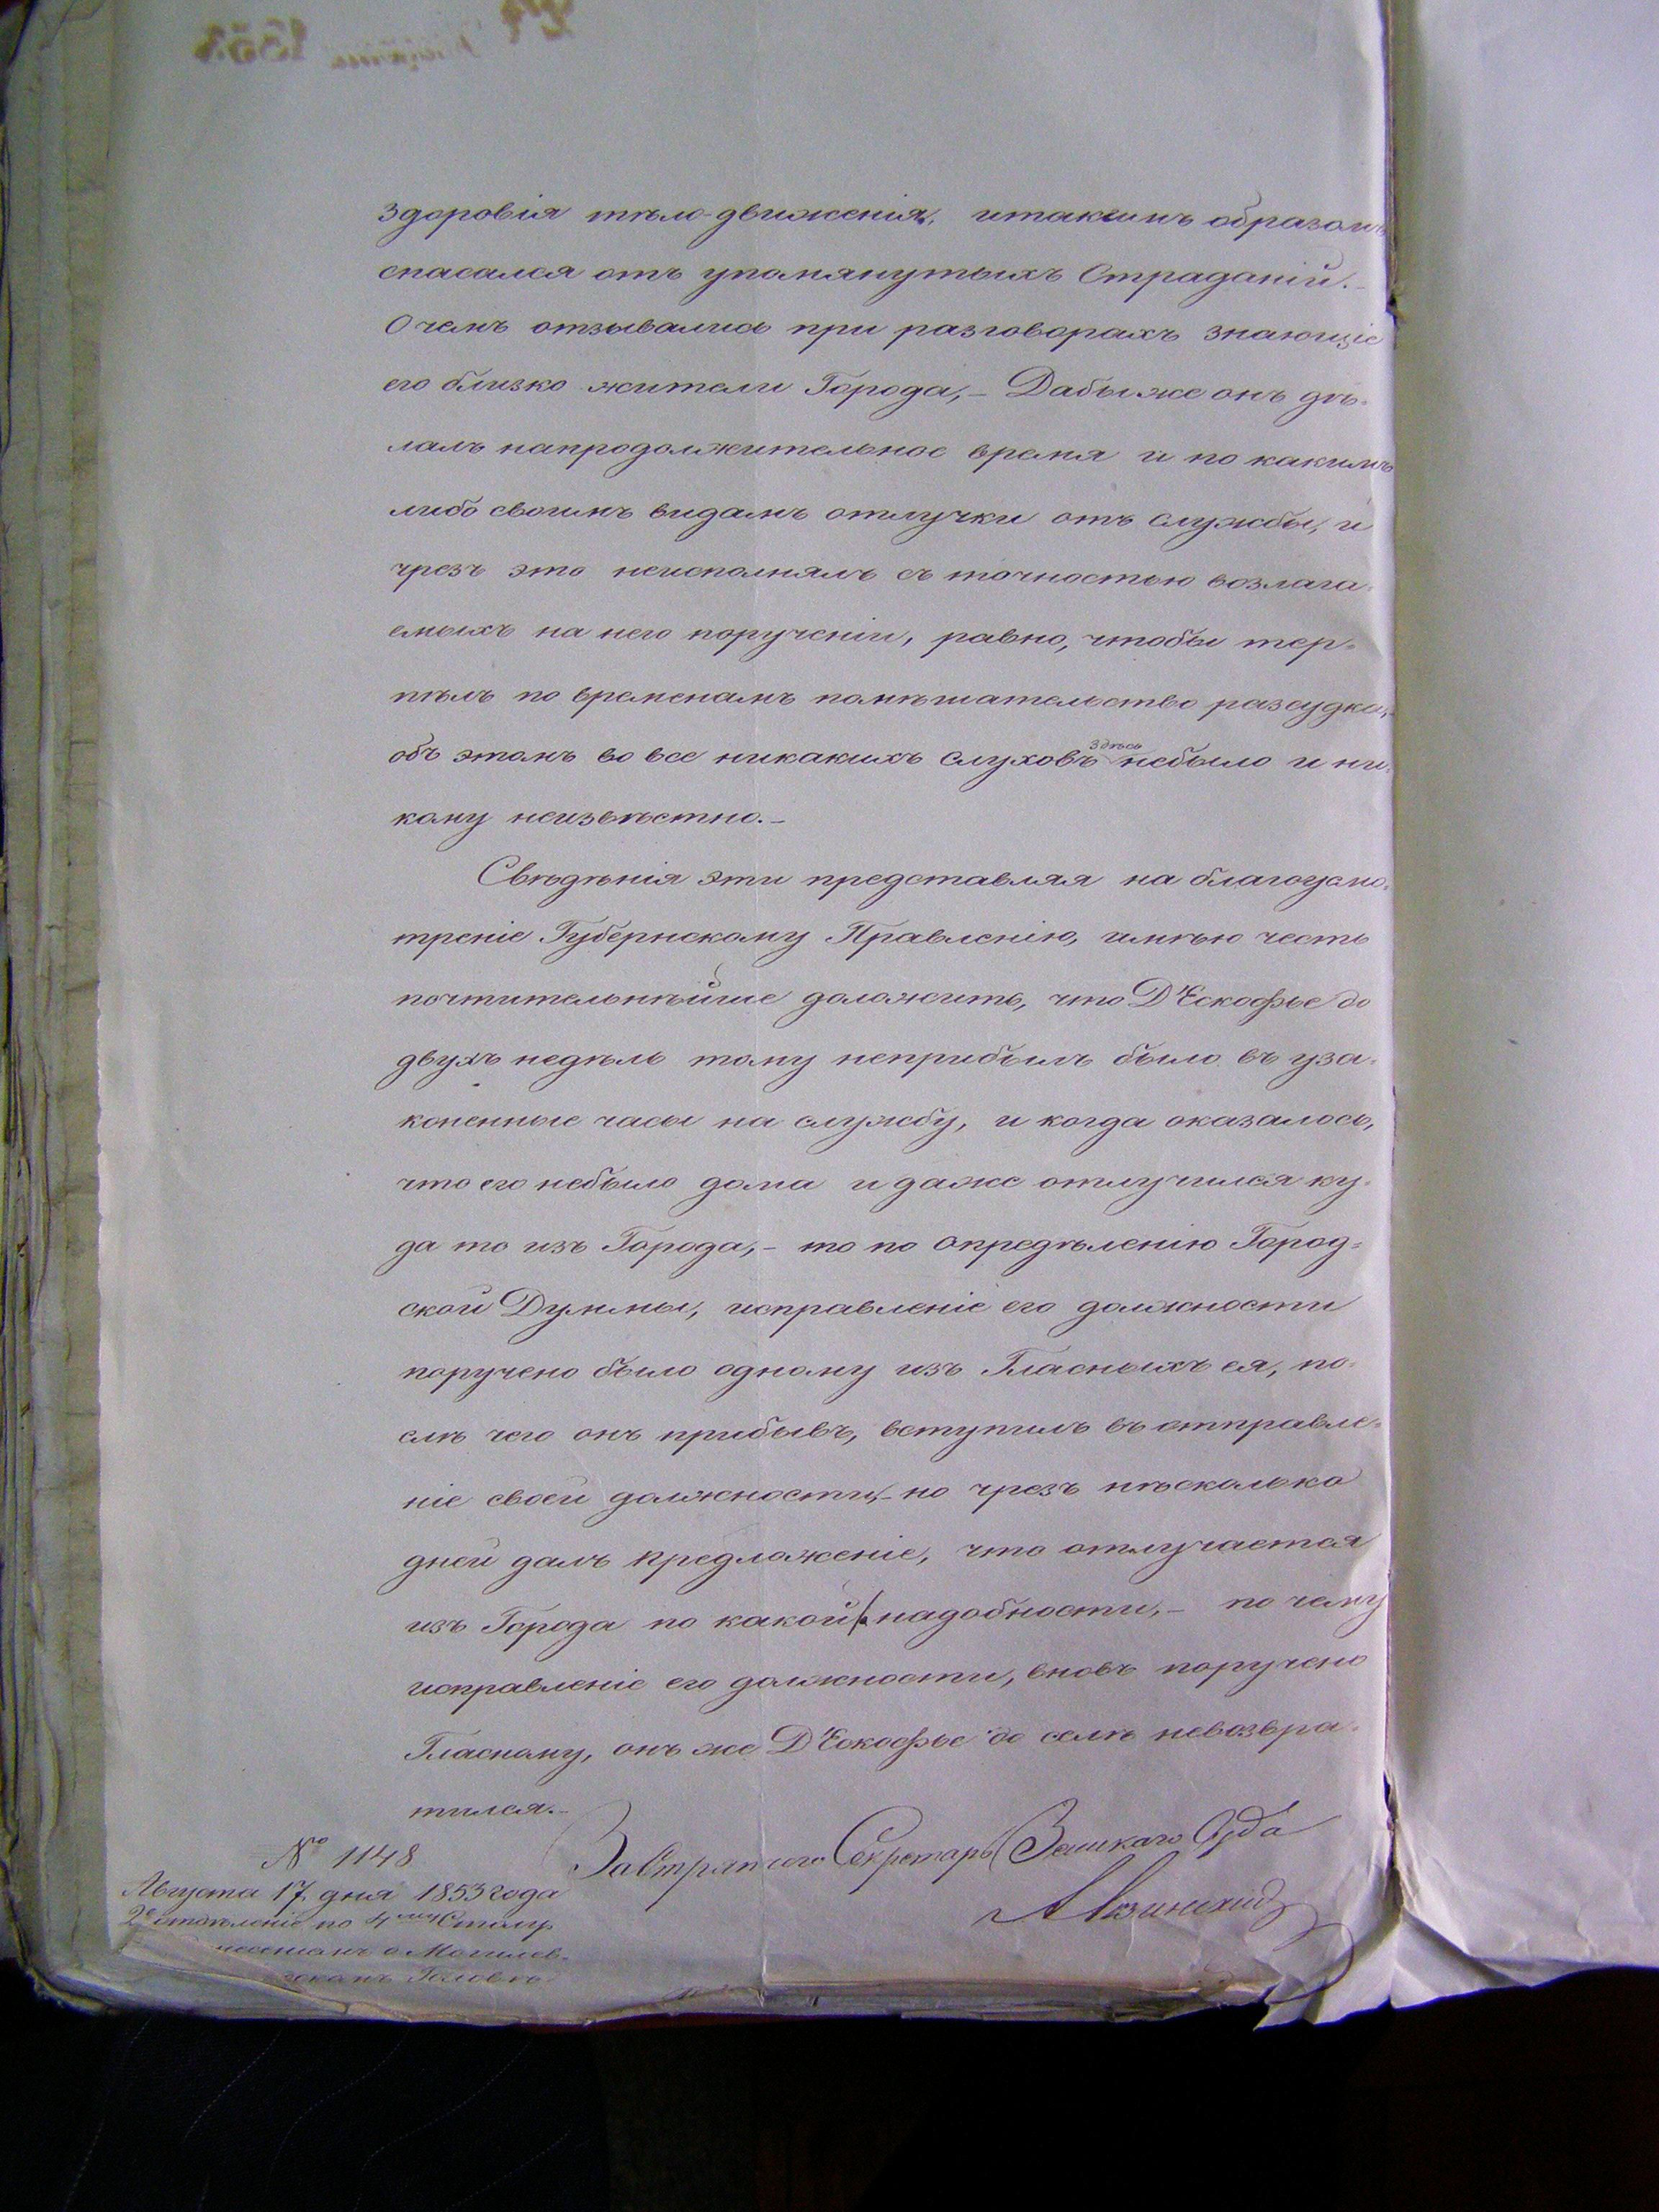 здоровія тѣло-движенія, итакимъ образомъ
спасался отъ упомянутыхъ Страданій.-
О чемъ отзывались при разговорахъ знающіе
его близко жители Города,- Дабы же онъ дѣ-
лалъ напродолжительное время и по какимъ
либо своимъ видамъ отлучки отъ службы, и
чрезъ это неисполнялъ съ точностью возлага-
емыхъ на него порученіи, равно, чтобы тер-
пѣлъ по временамъ помѣшательство разсудка,-
объ этомъ во все никакихъ слуховъ здѣсь небыло и ни-
кому неизвѣстно.-
Свѣдѣнія эти представляя на благоусмо-
треніе Губернскому Правленію, имѣю честь
почтительнѣйше доложить, что Д'Ескофье до
двухъ недѣль тому неприбылъ было въ уза-
коненные часы на службу, и когда оказалось,
что его небыло дома и даже отлучился ку-
да то изъ Города,- то по опредѣленію Город-
ской Думмы, исправленіе его должности
поручено было одному изъ Гласныхъ ея, по-
слѣ чего онъ прибывъ, вступилъ въ отправле-
ніе своей должности,- но чрезъ нѣсколько
дней далъ предложеніе, что отлучается
изъ Города по какой надобности,- по чему
исправленіе его должности, вновь поручено
Гласному, онъ же Д'Ескофье до селѣ невозвра-
тился.-
За Стряпчего Секретарь Земскаго Суда
№ 1148
Августа 17 дня 1853 года
2е отдѣленіе по 4му Столу
о Могилев-
скомъ Головѣ